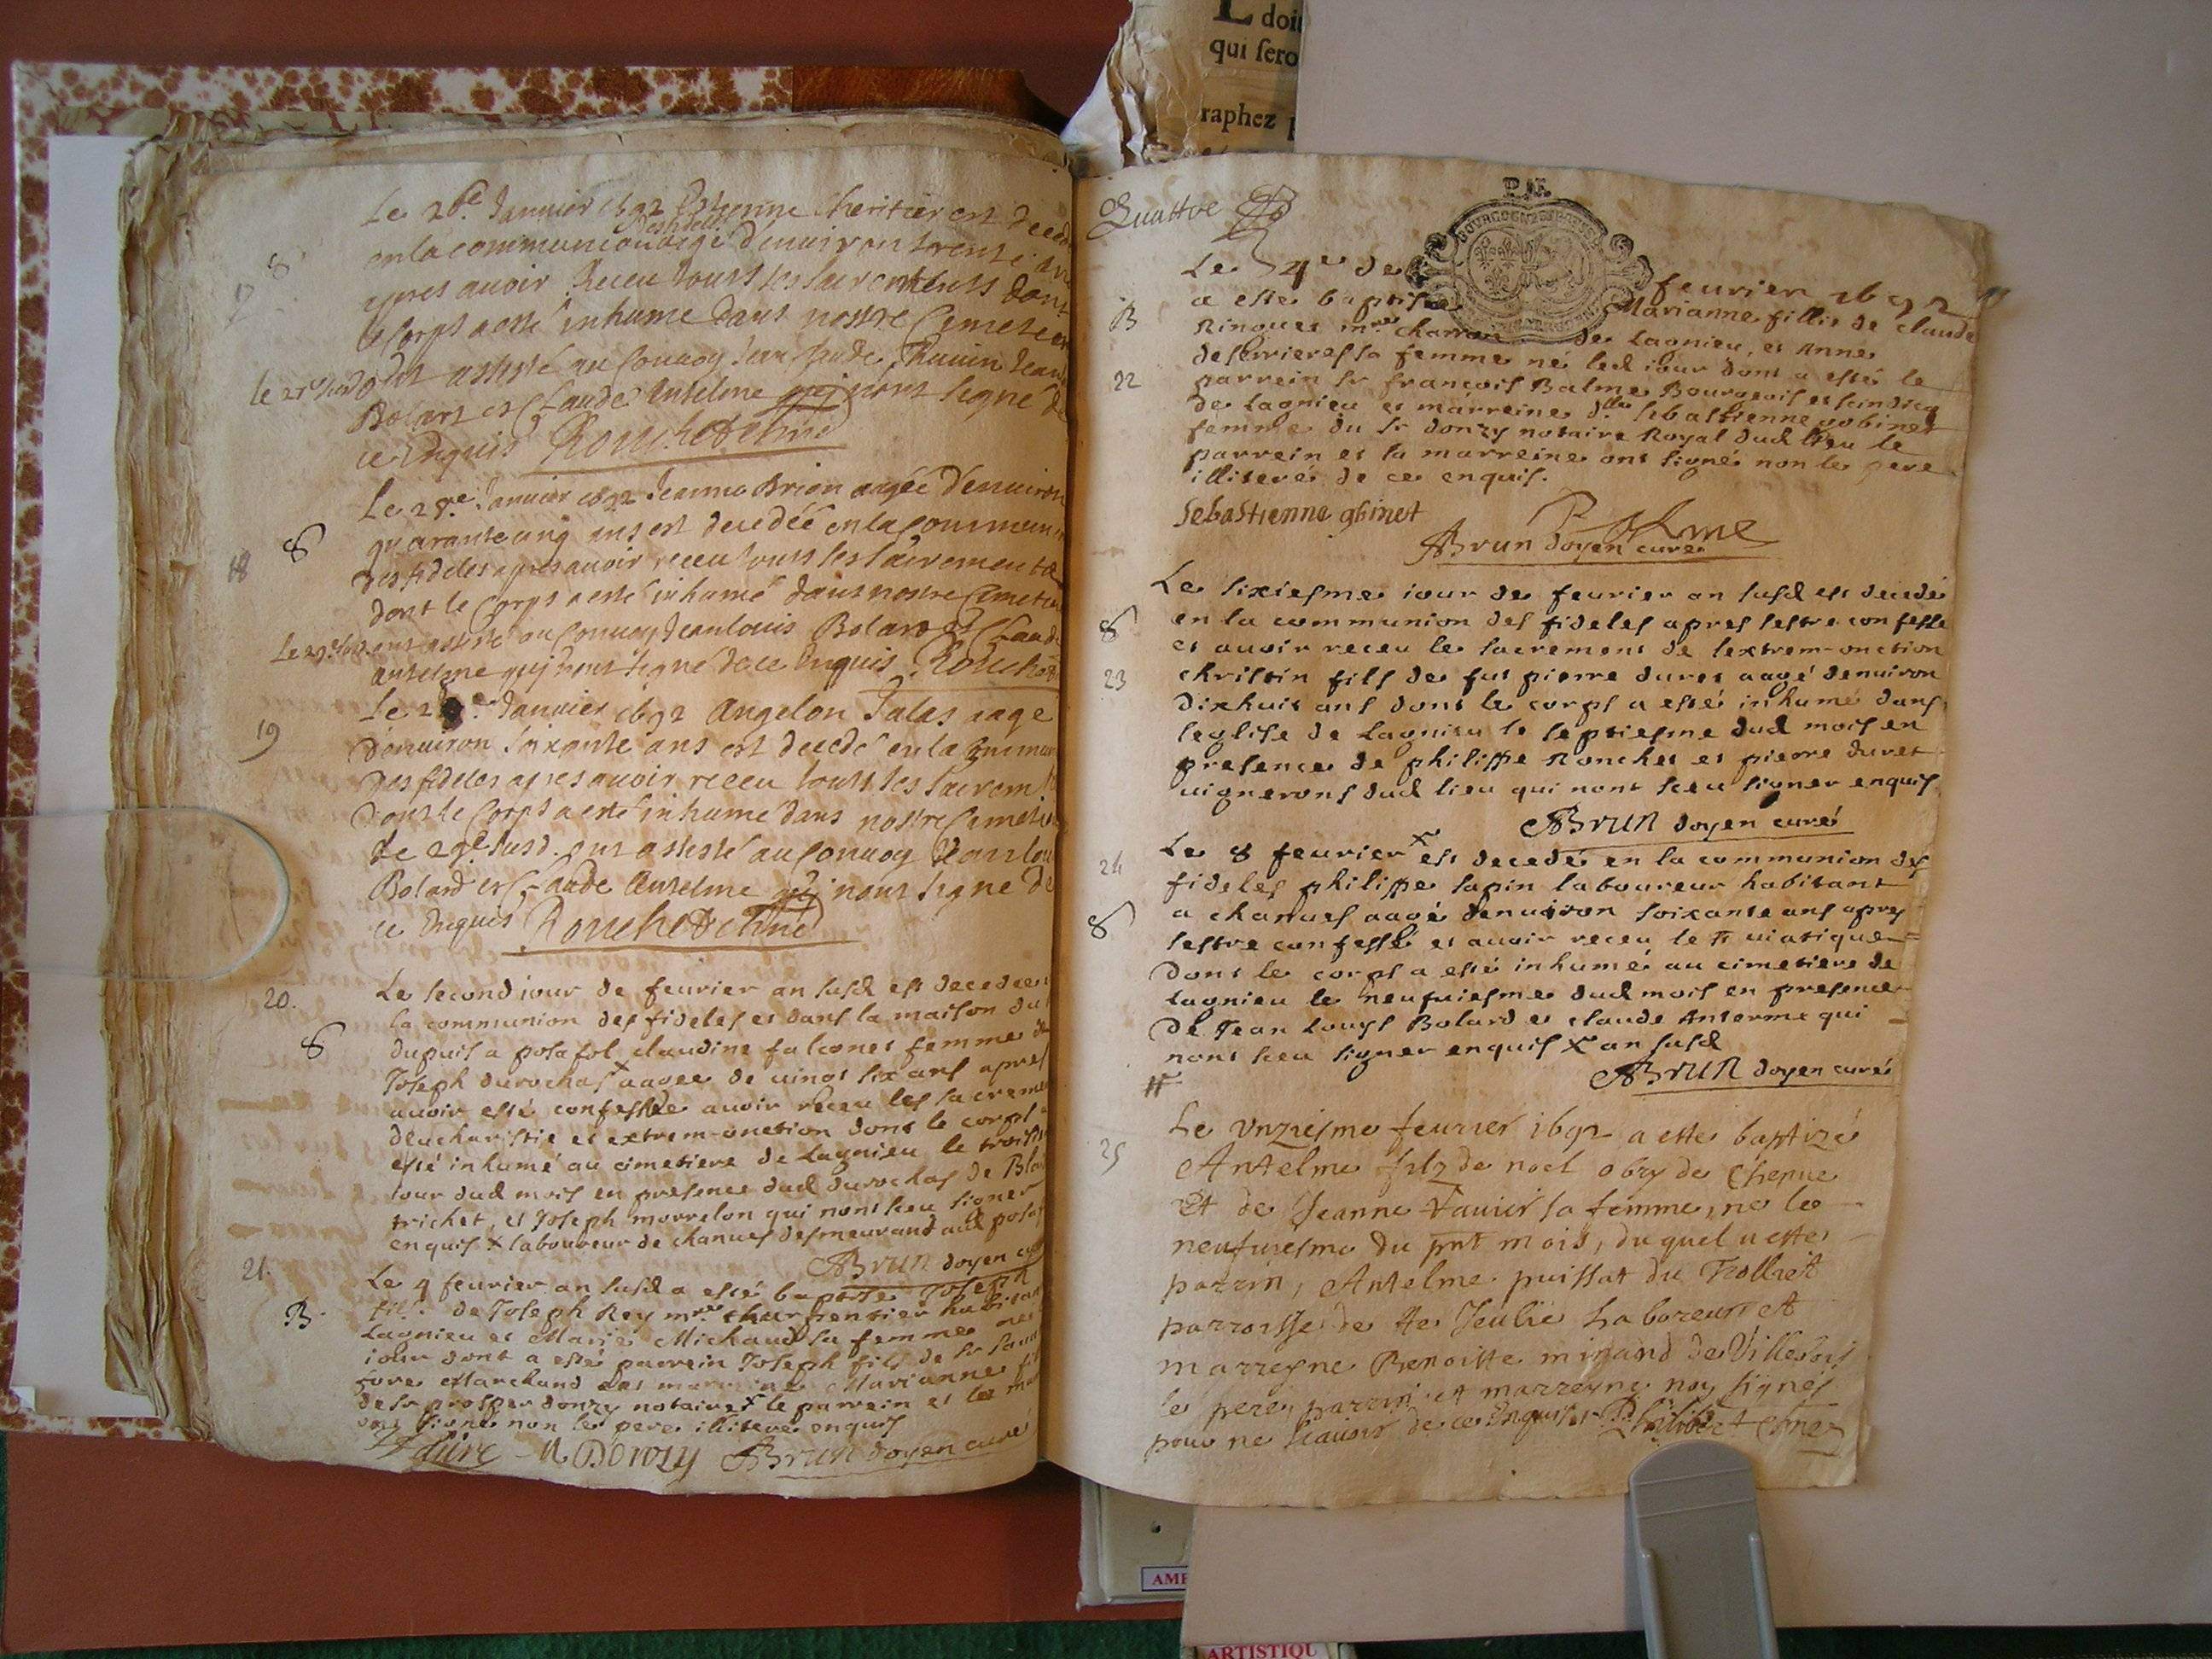 L doit
qui sero
raphez
Le 26e Januier 1692 Estienne heritier est deced
en la communion des fidell aagé d'enuiron trente an
17
S
apres auoir Receu touts les sacrements dont
le Corps a esté inhume dans nostre Cimetier
le 27e susd ont assisté au Conuoy Jean
Bolart et Claude Antelme qui nont signé de
ce Enquis Rouchet
Le 28.e Januier 1692 Jeanne Brion aagée d'enuiron
quarante cinq ans est decedée en la Commun
18
S
des fideles apres auoir receu touts les sacrements
dont le Corps a esté inhumé dans nostre Cimetie
Le 29e susd. ont assisté au Conuoy Jean louis Bolard et Claud
antelme quj nont signé de ce Enquis. Rouchet
Le 2 e Januier 1692 Angelon Jalas aage
19
d'enuiron soixante ans est decedé en la Commun
des fideles apres auoir receu touts les sacrem
dont le Corps a esté inhume dans nostre Cimetie
le 29e susd. ont assisté au Conuoy Jean lou
Bolard et Claude Antelme quj nont signe de
ce Enquis Rouchet
Le second iour de feurier an susd est decedee en
20.
la communion des fideles et dans la maison du
S
dupuis a posafol claudine falconet femme de
Joseph durochas x aagee de uingt six ans apres
auoir esté confessée auoir receu les sacreme
deucharistie et extrem-onction dont le corps a
esté inhumé au cimetiere de Lagnieu le troisi
iour dud mois en presence dud durochas de
trichet, et Joseph morrelon qui nont sceu signer
enquis x laboureur de chanues desmeurand aud posaf
ABrun doyen cu
21.
Le 4 feurier an susd a esté baptisé Joseph
B.
fils de Joseph Rey mre charpentier habitan
Lagnieu et Marie Michaud sa femme ne
iour dont a esté parrein Joseph fils de Sr
fore Marchand et marreine Marianne fil
de Sr prosper donzy notaire x le parrein et la mar
ont signé non le pere illiteré enquis
faure M DONZY ABrun doyen curé
Quattre
P.F.
Le 4e de feurier 1692
B
a esté baptisee Marianne fillie de claude
Rinquet mre charron de Lagnieu, et Anne
22
desurieres sa femme né led iour dont a esté le
parrein Sr francois Balme Bourgeois et scindicq
de Lagnieu et marreine dlle sebastienne gobinet
femme du Sr donzy notaire Royal dud lieu le
parrein et la marreine ont signé non le pere
illiteré de ce enquis.
Sebastienne gbinet
Balme
ABrun doyen curé
Le sixiesme iour de feurier an susd est decedé
S
en la communion des fideles apres sestre confessé
et auoir receu le sacrement de lextrem-onction
23
christin fils de fut pierre duret aagé denuiron
dixhuit ans dont le corps a esté inhumé dans
leglise de Lagnieu le septiesme dud mois en
presence de philippe Ronchet et pierre duret
uignerons dud lieu qui nont sceu signer enquis
ABRUN doyen curé
24
Le 8 feurier x est decedé en la communion des
fideles philippe sapin laboureur habitant
S
a chanues aagé denuiron soixante ans apres
sestre confessé et auoir receu le St uiatique
dont le corps a esté inhumé au cimetiere de
Lagnieu le neufuiesme dud mois en presence
de Jean Louys Bolard et claude Anterme qui
nont sceu signer enquis x an susd
ABRUN doyen curé
25
Le Vnziesme feurier 1692 a este baptizé
Antelme filz de noel obry de Chesnue
Et de Jeanne Vauier sa femme, né le
neufuiesme du pnt mois, duquel a esté
parrin, Antelme puissat du Trolliet
parroisse de Ste Jeulie Laboreur et
marreyne Benoitte minand de Villebois
le pere, parrin et marreyne non signés
pour ne scauoir de ce enquis
AMI
ARTISTIQU